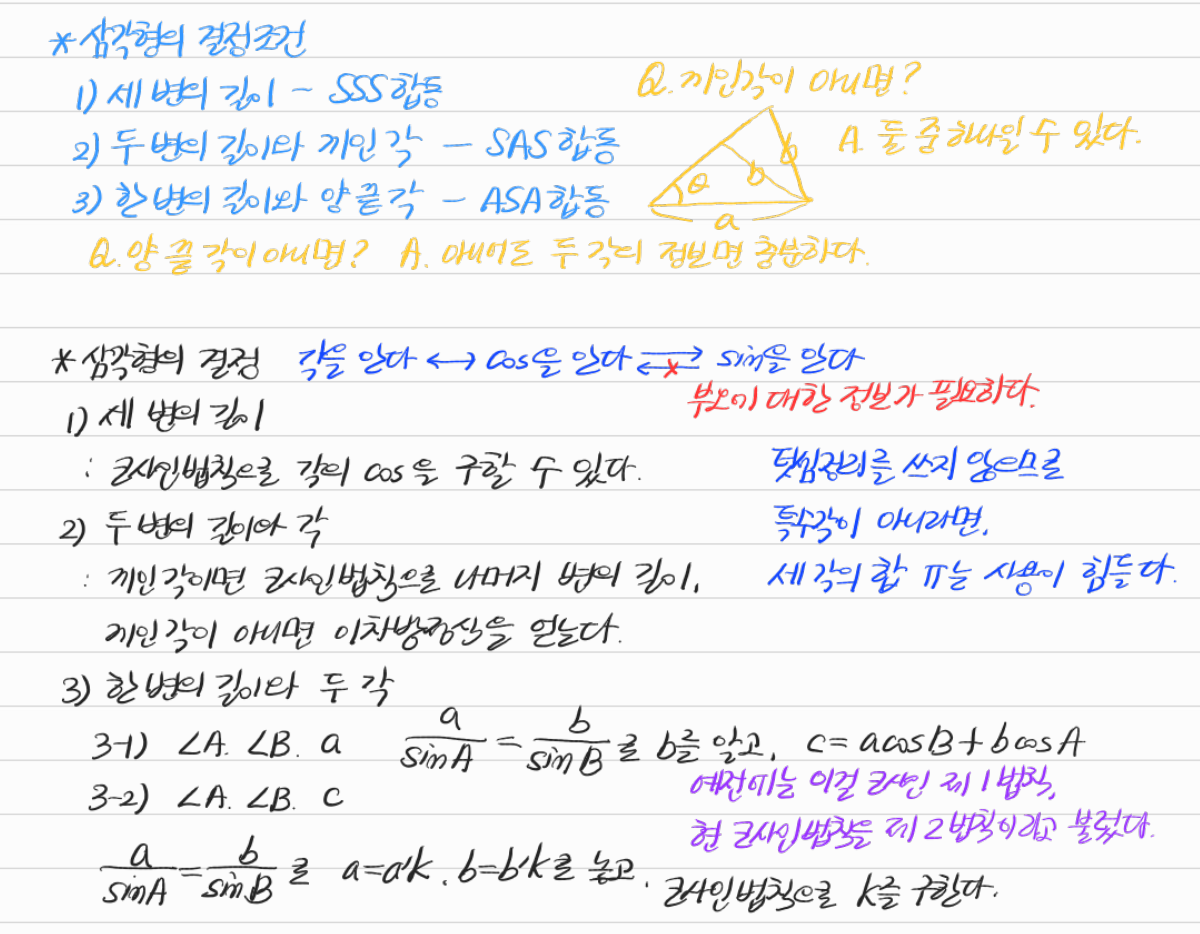 *삼각형의 결정조건
1) 세 변의 길이 - SSS합동
2) 두 변의 길이와 끼인 각 - SAS합동
3) 한 변의 길이와 양 끝 각 - ASA합동
Q. 끼인각이 아니면?
A. 둘 중 하나일 수 있다.
θ b b
a
Q. 양 끝 각이 아니면? A. 아니어도 두 각의 정보면 충분하다.
*삼각형의 결정 각을 안다 ↔ cos을 안다 ⇄ sin을 안다
×
부호에 대한 정보가 필요하다.
1) 세 변의 길이
: 코사인법칙으로 각의 cos을 구할 수 있다.
덧셈정리를 쓰지 않으므로
특수각이 아니라면,
세 각의 합 π는 사용이 힘들다.
2) 두 변의 길이와 각
: 끼인각이면 코사인법칙으로 나머지 변의 길이,
끼인각이 아니면 이차방정식을 얻는다.
3) 한 변의 길이와 두 각
3-1) ∠A. ∠B. a a/sinA = b/sinB 로 b를 알고, c= acosB+bcosA
예전에는 이걸 코사인 제 1법칙,
현 코사인법칙을 제 2법칙이라고 불렀다.
3-2) ∠A. ∠B. c
a/sinA = b/sinB 로 a=a'k, b=b'k로 놓고, 코사인법칙으로 k를 구한다.